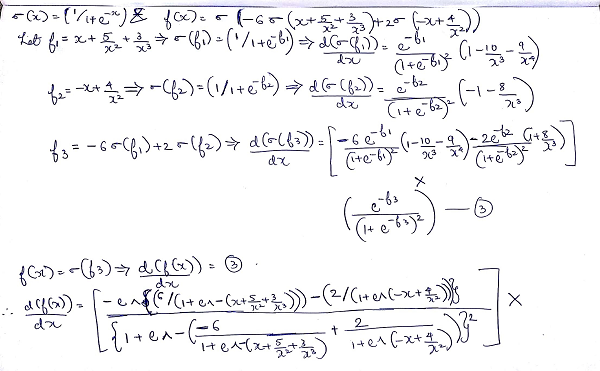 σ(x) = (1/1+e^-x) & f(x) = σ (-6σ(x + 5/x² + 3/x³) + 2σ(-x + 4/x²))
Let f₁ = x + 5/x² + 3/x³ ⇒ σ(f₁) = (1/1+e^-f₁) ⇒ d(σ(f₁))/dx = e^-f₁/(1+e^-f₁)² (1 - 10/x³ - 9/x⁴)
f₂ = -x + 4/x² ⇒ σ(f₂) = (1/1+e^-f₂) ⇒ d(σ(f₂))/dx = e^-f₂/(1+e^-f₂)² (-1 - 8/x³)
f₃ = -6σ(f₁) + 2σ(f₂) ⇒ d(σ(f₃))/dx = [-6e^-f₁/(1+e^-f₁)² (1 - 10/x³ - 9/x⁴) - 2e^-f₂/(1+e^-f₂)² (1 + 8/x³)]
×
(e^-f₃/(1+e^-f₃)²) — ③
f(x) = σ(f₃) ⇒ d(f(x))/dx = ③.
∴ d(f(x))/dx = [-e^{(6/(1+e^-(x + 5/x² + 3/x³))) - (2/(1+e^(-x + 4/x²))} / {1+e^-(-6/(1+e^-(x + 5/x² + 3/x³)) + 2/(1+e^(-x + 4/x²)))}²] ×